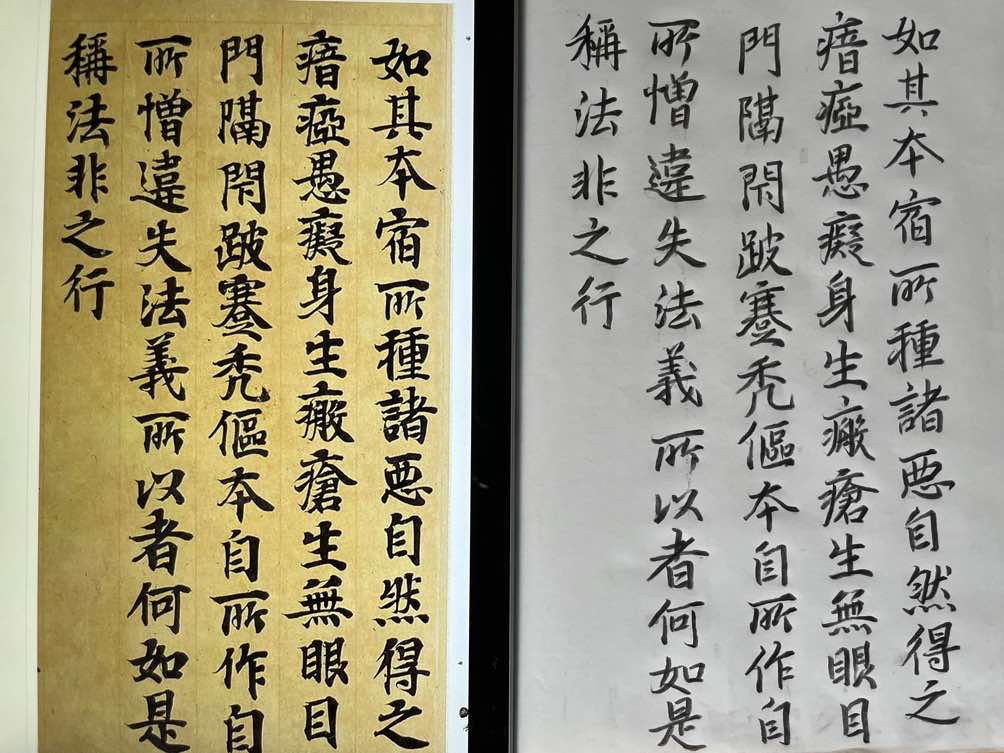 如其本宿所種諸惡自然得之
瘖瘂愚癡身生瘢瘡生無眼目
門隔閇跛蹇禿傴本自所作自
所憎違失法義所以者何如是
稱法非之行
如其本宿所種諸惡自然得之
瘖瘂愚癡身生瘢瘡生無眼目
門隔閇跛蹇禿傴本自所作自
所憎違失法義所以者何如是
稱法非之行